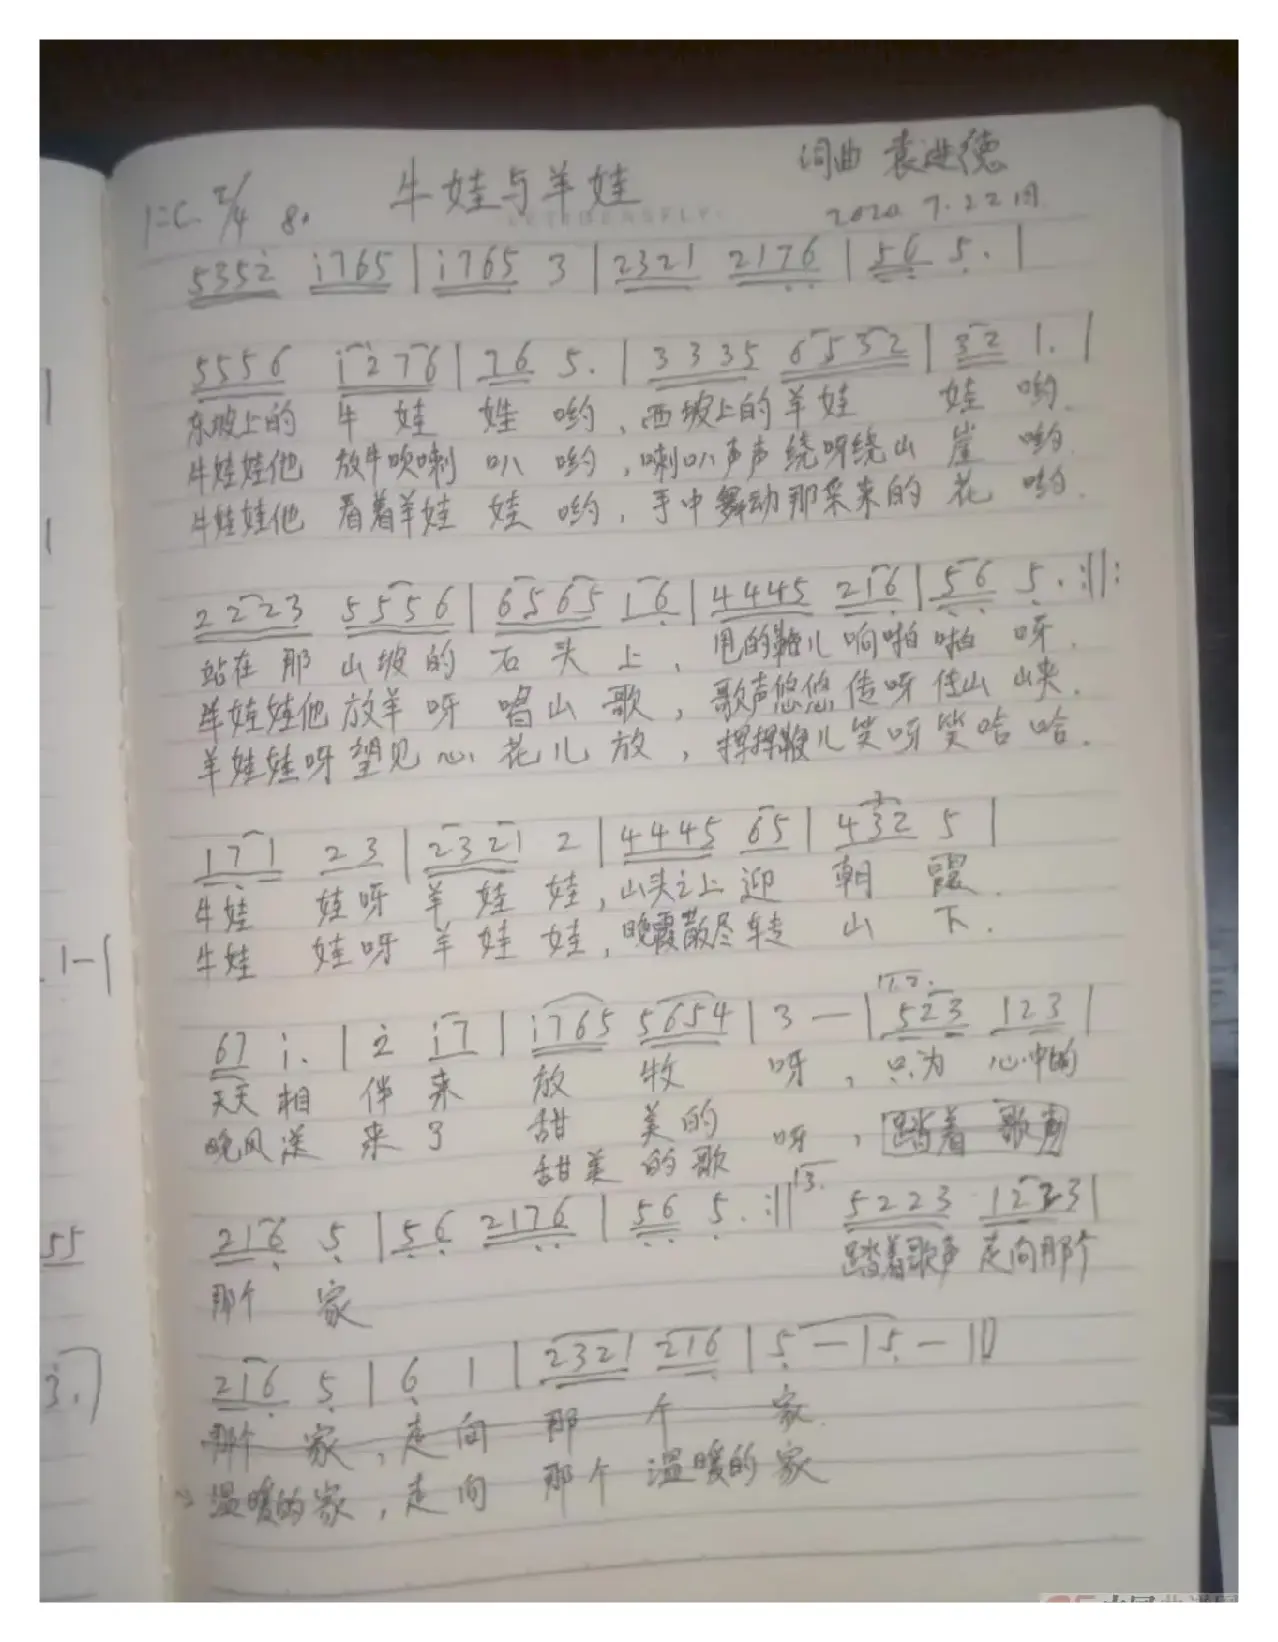 牛娃与羊娃
词曲 袁进德
1=C 2/4 80
2020 7.22日
5352 1765 | 1765 3 | 2321 2176 | 56 5. |
5556 1276 | 76 5. | 3335 6532 | 32 1. |
东坡上的 牛 娃 娃 哟，西坡上的羊娃 娃 哟.
牛娃娃他 放牛吹喇 叭 哟，喇叭声声绕呀绕山 崖 哟
牛娃娃他 看着羊娃 娃 哟，手中舞动那采来的 花 哟.
2223 5556 | 6565 16 | 4445 216 | 56 5. :||:
站在那 山坡的 石 头 上，甩的鞭儿响啪啪 呀.
羊娃娃他放羊呀 唱山 歌，歌声悠悠传呀传山 峡.
羊娃娃呀望见心 花儿 放，挥挥鞭儿笑呀笑哈 哈.
171 23 | 2321 2 | 4445 65 | 432 5 |
牛娃 娃呀 羊 娃 娃，山头之上迎 朝 霞.
牛娃 娃呀 羊 娃 娃，晚霞散尽转 山 下.
1.2.
67 1. | 2 17 | 1765 5654 | 3 — | 523 123 |
天天 相 伴 来 放 牧 呀，只为 心中的
晚风送 来了 甜 美的 呀，踏着 歌声
甜美 的歌
13.
216 5 | 56 2176 | 56 5. :|| 5223 1233 |
那个 家 踏着歌声 走向那个
216 5 | 6 1 | 2321 216 | 5 — | 5 — ||
那个 家，走 向 那 个 家.
温暖的家，走 向 那个 温暖的家
1-|
55
3.)